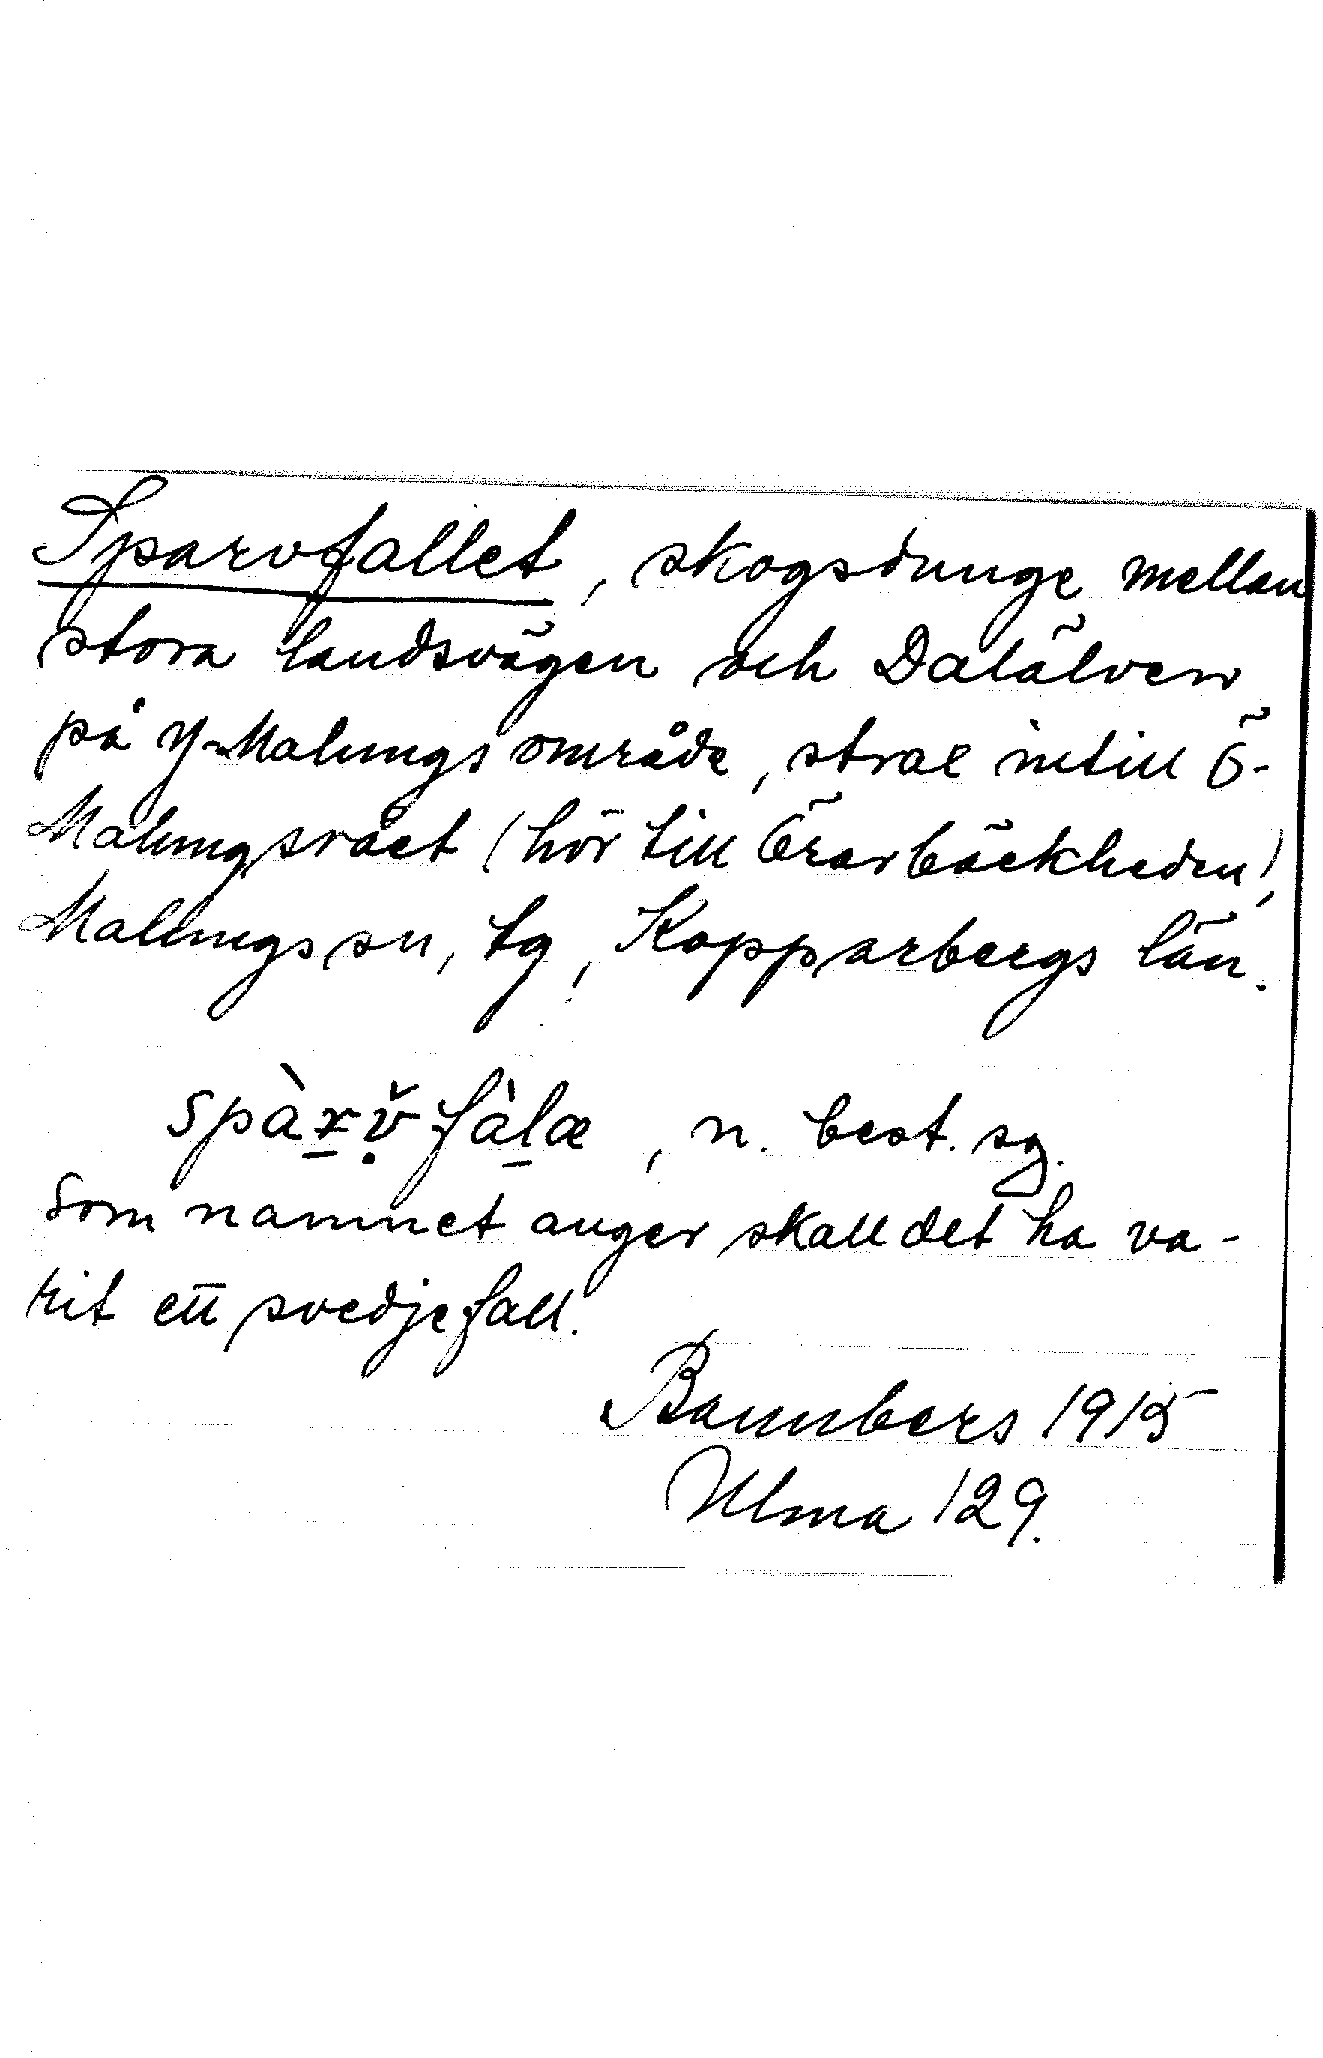 Sparvfallet, skogsdunge mellan
stora landsvägen och Dalälven
på Y-Malungs område, strax intill Ö-
Malungsrået (hör till Örarbäckheden),
Malungs sn, tg, Kopparbergs län.
spàrṿ̆fàlæ, n. best. sg.
Som namnet anger skall det ha va-
rit ett svedjefall.
Bannbers 1915
Ulma 129.